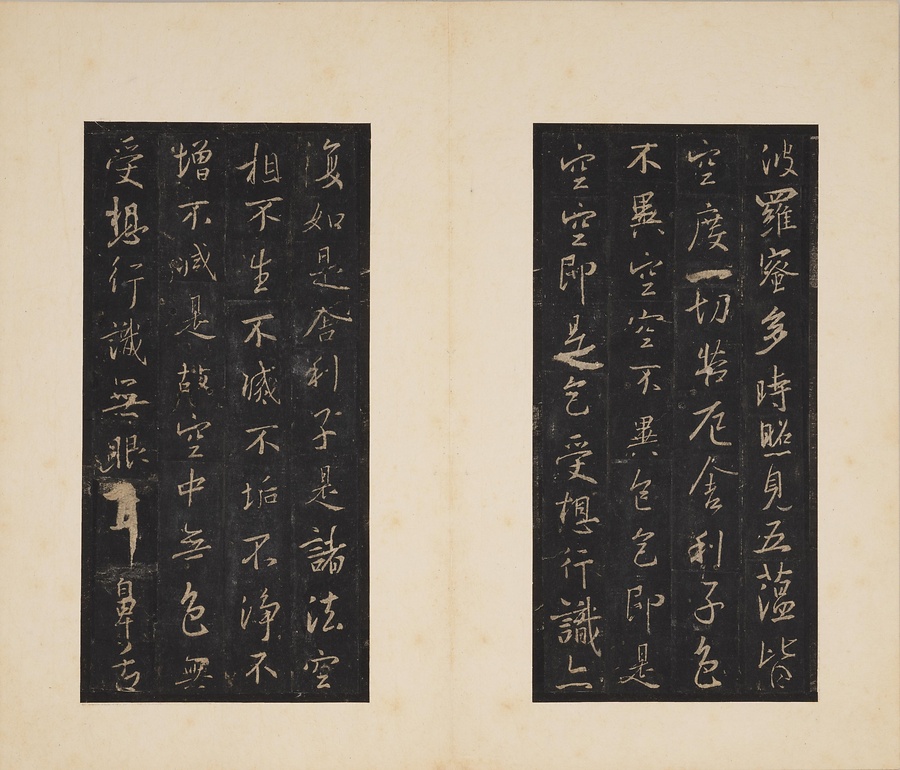 波羅蜜多時照見五蘊皆
空度一切苦厄舍利子色
不異空空不異色色即是
空空即是色受想行識亦
復如是舍利子是諸法空
相不生不滅不垢不淨不
增不減是故空中無色無
受想行識無眼耳鼻舌